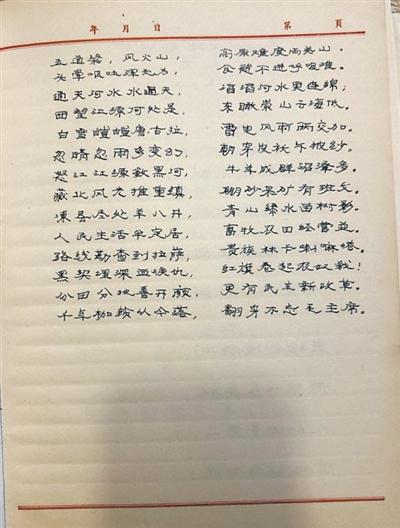 年 月 日 第 頁
五道梁，风火山， 高原难度两关山。
头晕呕吐浑无力， 食欲不进呼吸难。
通天河水水通天 滔滔河水更连绵；
西望江源何处是， 东眺崇山云海低。
白雪皚皚唐古拉， 雷电风雨两交加。
忽晴忽雨多变幻， 朝穿皮袄午披纱。
怒江江源歘黑河 牛羊成群沼泽多。
藏北风光推重镇， 硼砂采矿有班戈
尽处羊八井， 青山绿水画树影。
人民生活牢定居， 畜牧农田经营并。
路线勘查到拉萨， 贵族林卡喇嘛塔。
黑契埋深血泪仇 红旗卷起农奴戟！
分田分地喜开颜， 更有民主新改革。
千年枷锁从今落， 翻身不忘毛主席。